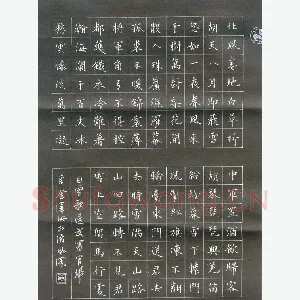 北風卷地白草折
胡天八月即飛雪
忽如一夜春風來
千樹萬樹梨花開
散入珠簾濕羅幕
狐裘不暖錦衾薄
將軍角弓不得控
都護鐵衣冷難著
瀚海闌干百丈冰
愁雲慘淡萬里凝
中軍置酒飲歸客
胡琴琵琶與羌笛
紛紛暮雪下轅門
風掣紅旗凍不翻
輪臺東門送君去
去時雪滿天山路
山迴路轉不見君
雪上空留馬行處
白雪歌送武判官歸